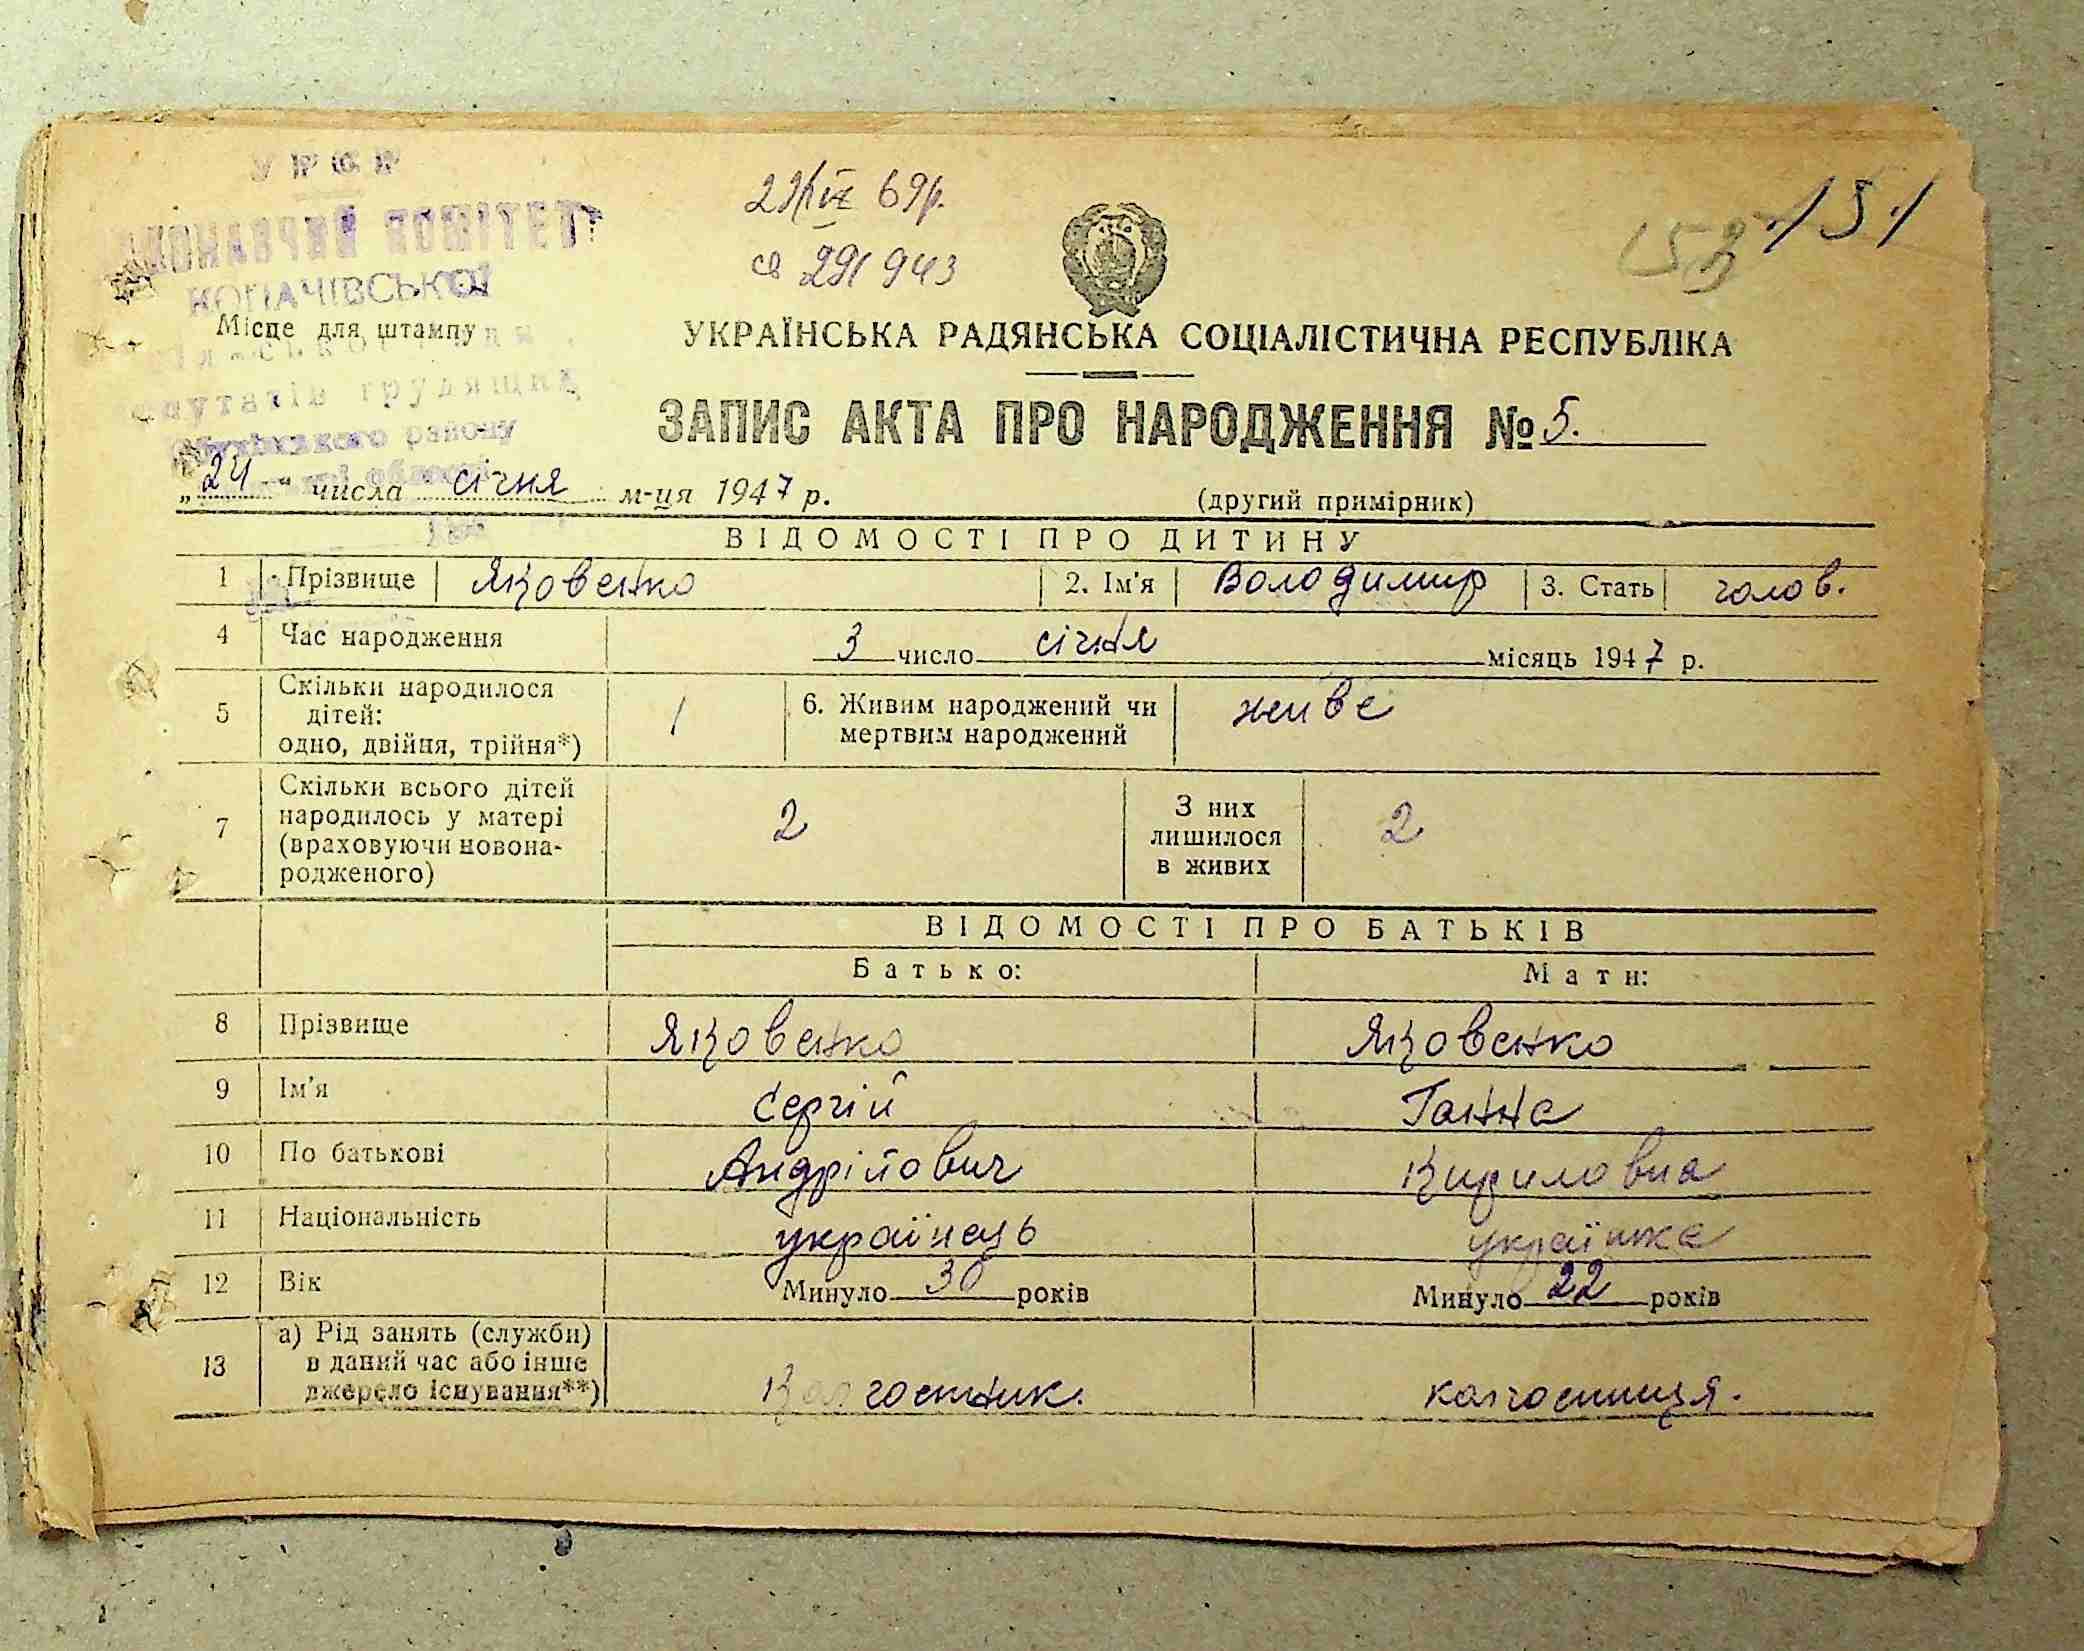 УРСР
КОНАВЧИЙ КОМІТЕТ
КОПАЧІВСЬКОЇ
Місце для штампу
путатів трудящих
Обухівського району
області
29/IV 69р.
св 291943
151
УКРАЇНСЬКА РАДЯНСЬКА СОЦІАЛІСТИЧНА РЕСПУБЛІКА
ЗАПИС АКТА ПРО НАРОДЖЕННЯ № 5.
„24" числа січня м-ця 1947 р. (другий примірник)
ВІДОМОСТІ ПРО ДИТИНУ
1 Прізвище Яковенко 2. Ім'я Володимир 3. Стать чолов.
4 Час народження 3 число січня місяць 1947 р.
5 Скільки народилося
дітей:
одно, двійня, трійня*) 1 6. Живим народжений чи
мертвим народжений живе
7 Скільки всього дітей
народилось у матері
(враховуючи новона-
родженого) 2 З них
лишилося
в живих 2
ВІДОМОСТІ ПРО БАТЬКІВ
Батько: Мати:
8 Прізвище Яковенко Яковенко
9 Ім'я Сергій Ганна
10 По батькові Андрійович Кириловна
11 Національність українець українка
12 Вік Минуло 30 років Минуло 22 років
13 а) Рід занять (служби)
в даний час або інше
джерело існування**) Колгоспник. колгоспниця.